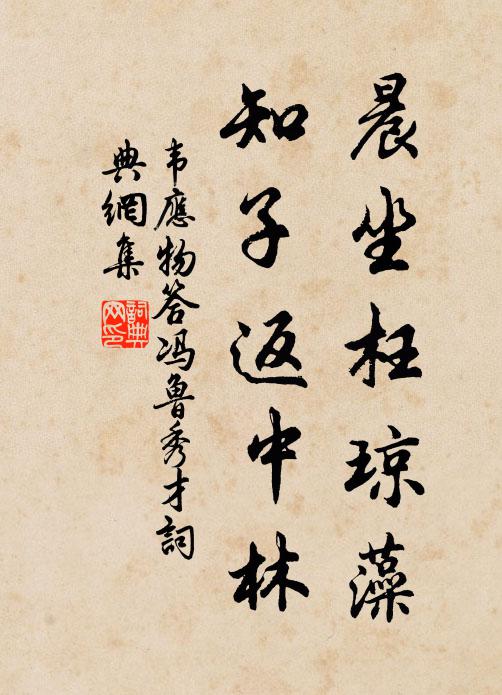 晨坐枉琼藻
知子返中林
韦應物答冯魯秀才詞
典網集
詞典网印